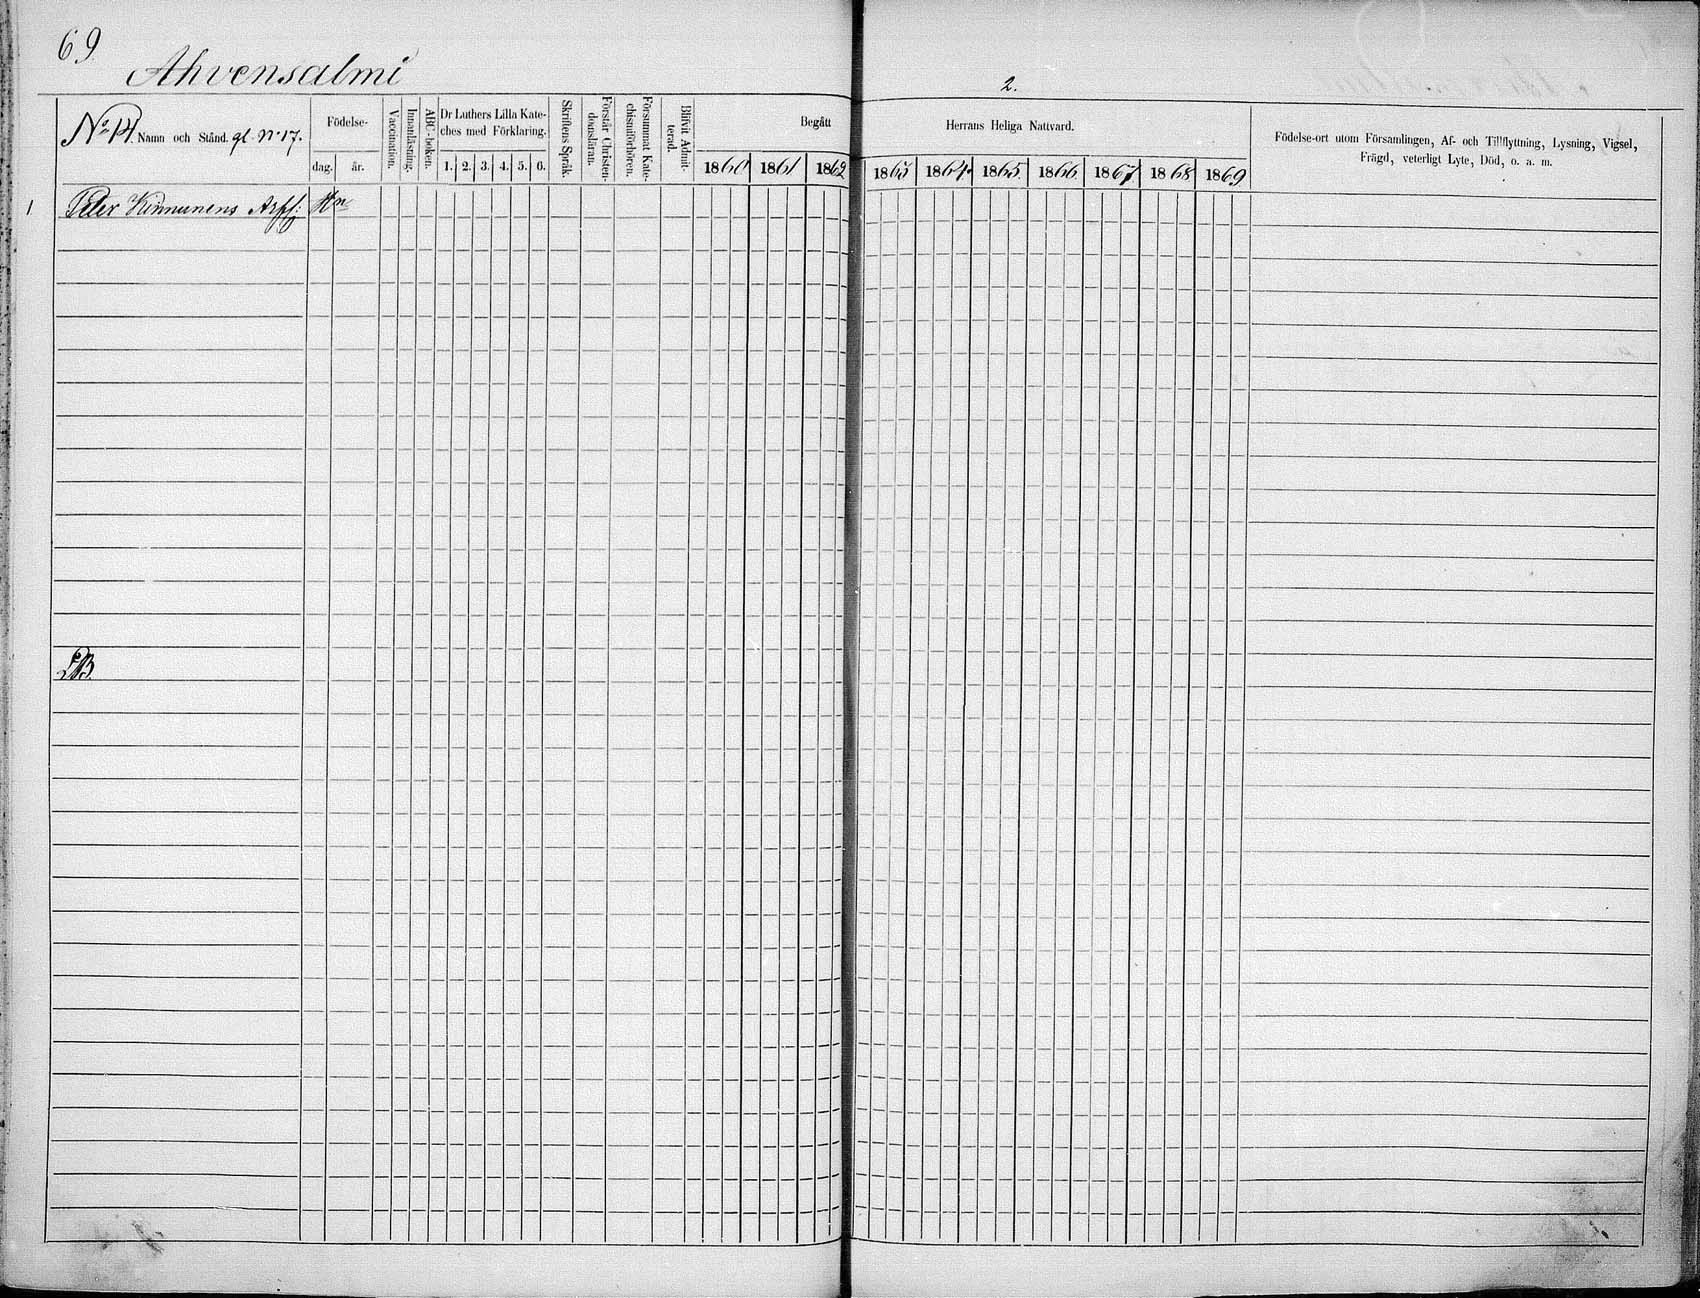 69.
Ahvensalmi
2.
No 14. Namn och Stånd. gl. No 17.
Födelse-
dag. år.
Vaccination.
Innanläsning.
ABC-boken.
Dr Luthers Lilla Kate-
ches med Förklaring.
1. 2. 3. 4. 5. 6.
Skriftens Språk.
Förstår Christen-
domsläran.
Försummat Kate-
chismiförhören.
Blifvit Admit-
terad.
Begått
1860 1861 1862
Herrans Heliga Nattvard.
1863 1864 1865. 1866 1867 1868 1869
Födelse-ort utom Församlingen, Af- och Tillflyttning, Lysning, Vigsel,
Frägd, veterligt Lyte, Död, o. a. m.
1 Peter Kinnunens